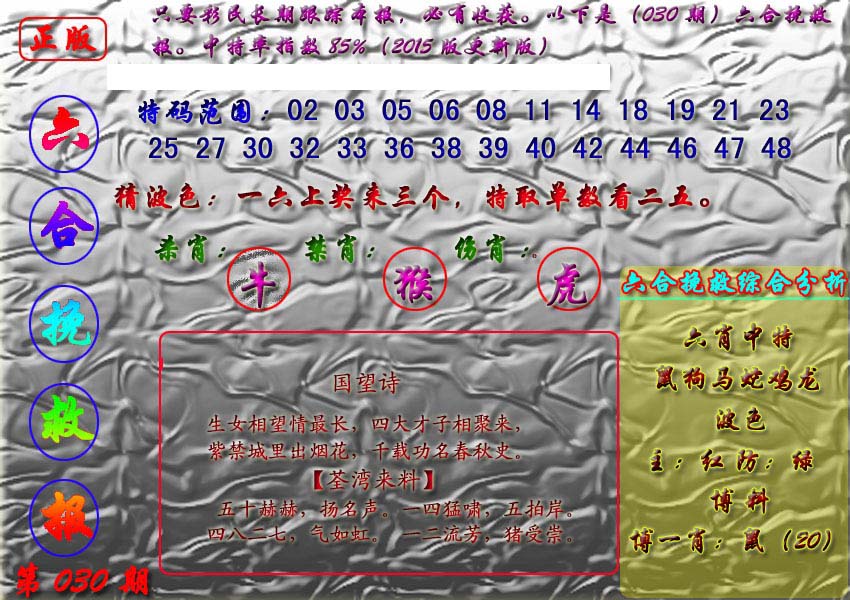 只要彩民长期跟踪本报，必有收获。以下是（030期）六合挽救
报。中特率指数85%（2015版更新版）
正版
六合挽救报
第030期
特码范围：02 03 05 06 08 11 14 18 19 21 23
25 27 30 32 33 36 38 39 40 42 44 46 47 48
猜波色：一六上奖来三个，特取单数看二五。
杀肖：牛 禁肖：猴 伤肖：虎
国望诗
生女相望情最长，四大才子相聚来，
紫禁城里出烟花，千载功名春秋史。
【荃湾来料】
五十赫赫，扬名声。一四猛啸，五拍岸。
四八二七，气如虹。一二流芳，猪受崇。
六合挽救综合分析
六肖中特
鼠狗马蛇鸡龙
波色
主：红防：绿
博料
博一肖：鼠（20）